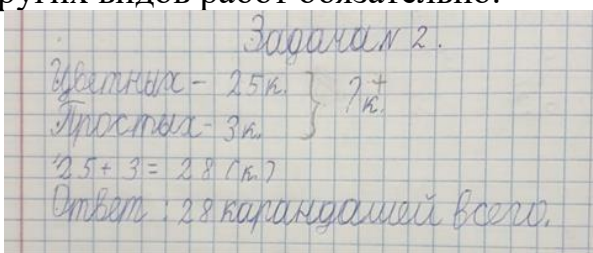 других видов работ обязательно.
Задача № 2.
Цветных - 25 к. } ? к.
Простых - 3 к.
25 + 3 = 28 (к.)
Ответ : 28 карандашей всего.